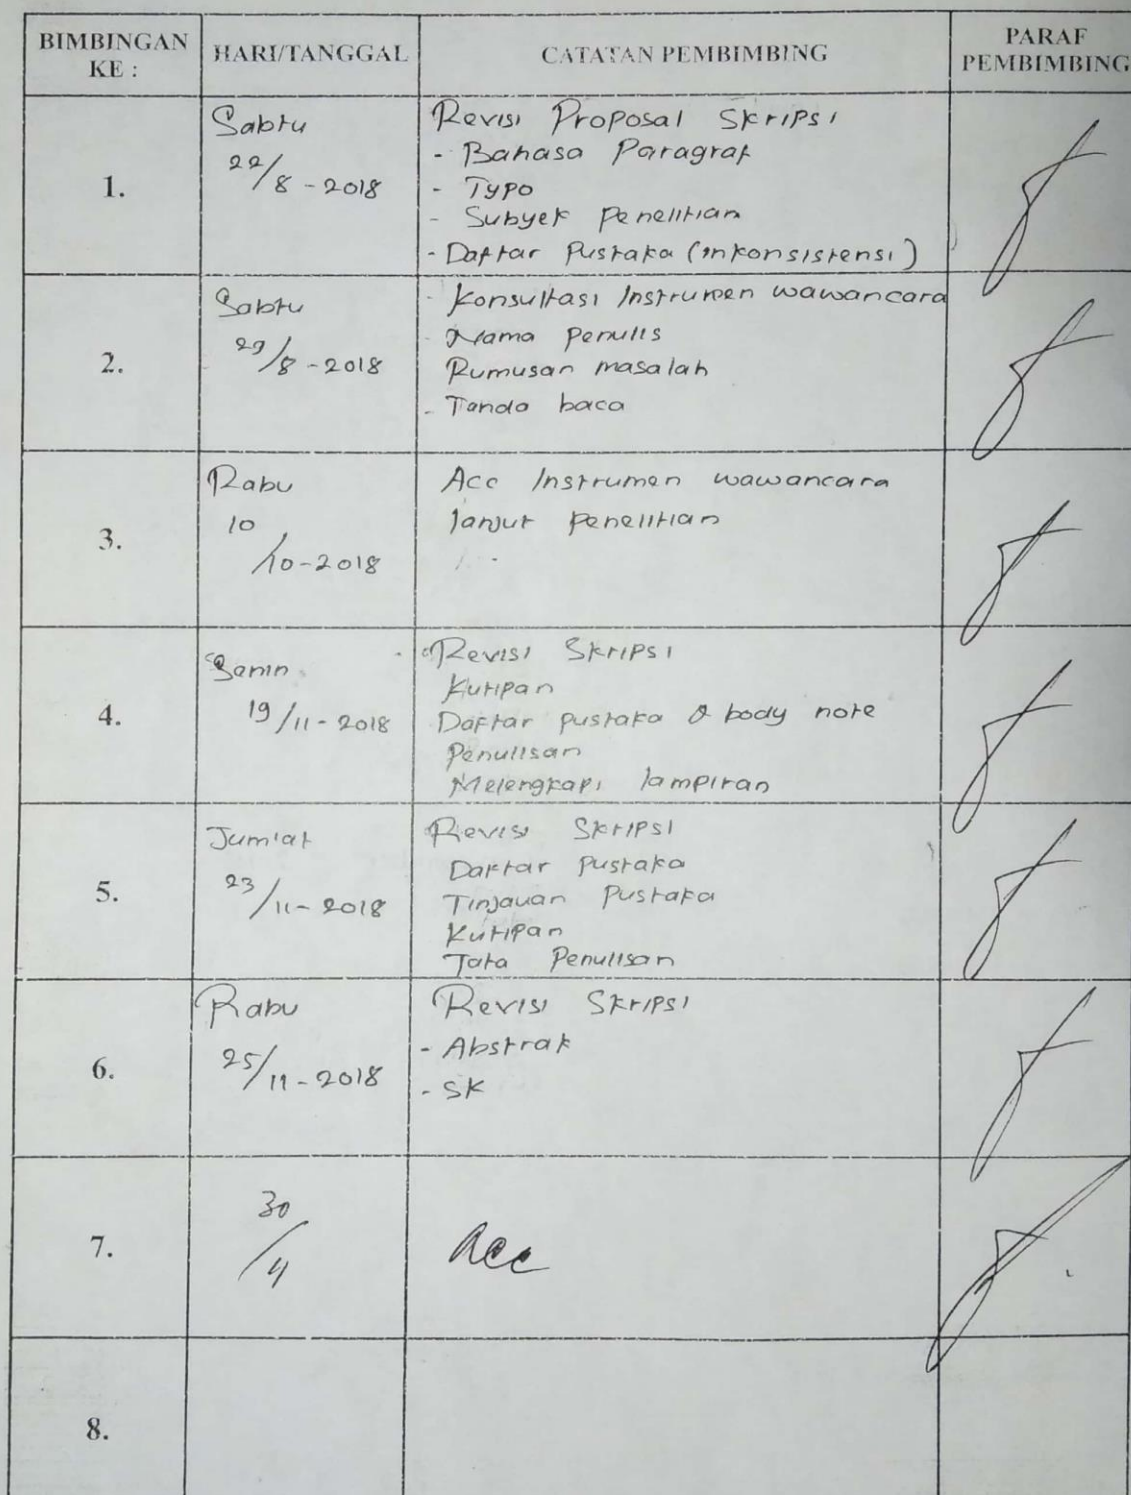 BIMBINGAN KE :
HARI/TANGGAL
CATATAN PEMBIMBING
PARAF PEMBIMBING
1.
Sabtu
22/8-2018
Revisi Proposal Skripsi
- Bahasa Paragraf
- Typo
- Subyek Penelitian
- Daftar Pustaka (inkonsistensi)
2.
Sabtu
29/8-2018
- Konsultasi Instrumen wawancara
- Nama Penulis
Rumusan masalah
- Tanda baca
3.
Rabu
10
/10-2018
Acc Instrumen wawancara
lanjut Penelitian
4.
Senin
19/11-2018
Revisi Skripsi
Kutipan
Daftar pustaka & body note
Penulisan
Melengkapi lampiran
5.
Jum'at
23/11-2018
Revisi Skripsi
Daftar Pustaka
Tinjauan Pustaka
Kutipan
Tata Penulisan
6.
Rabu
25/11-2018
Revisi Skripsi
- Abstrak
- SK
7.
30
/4
acc
8.